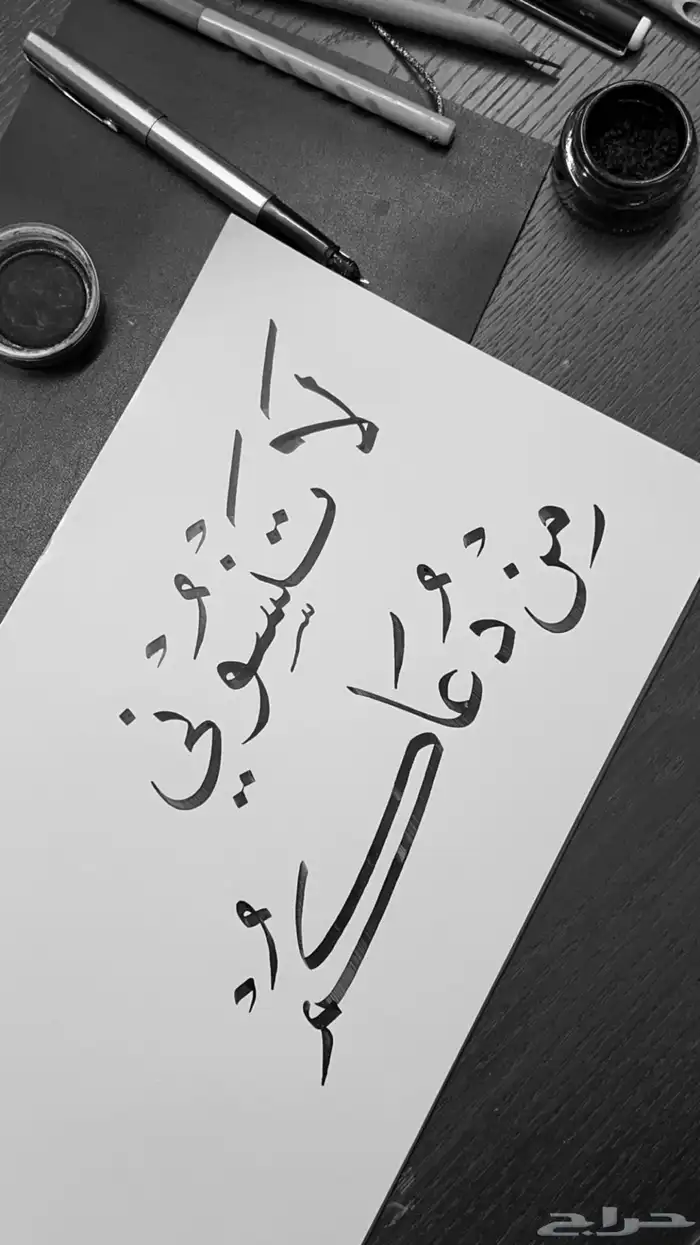 لَا تَنسُوني
مِن دُعَاكُم
حراج